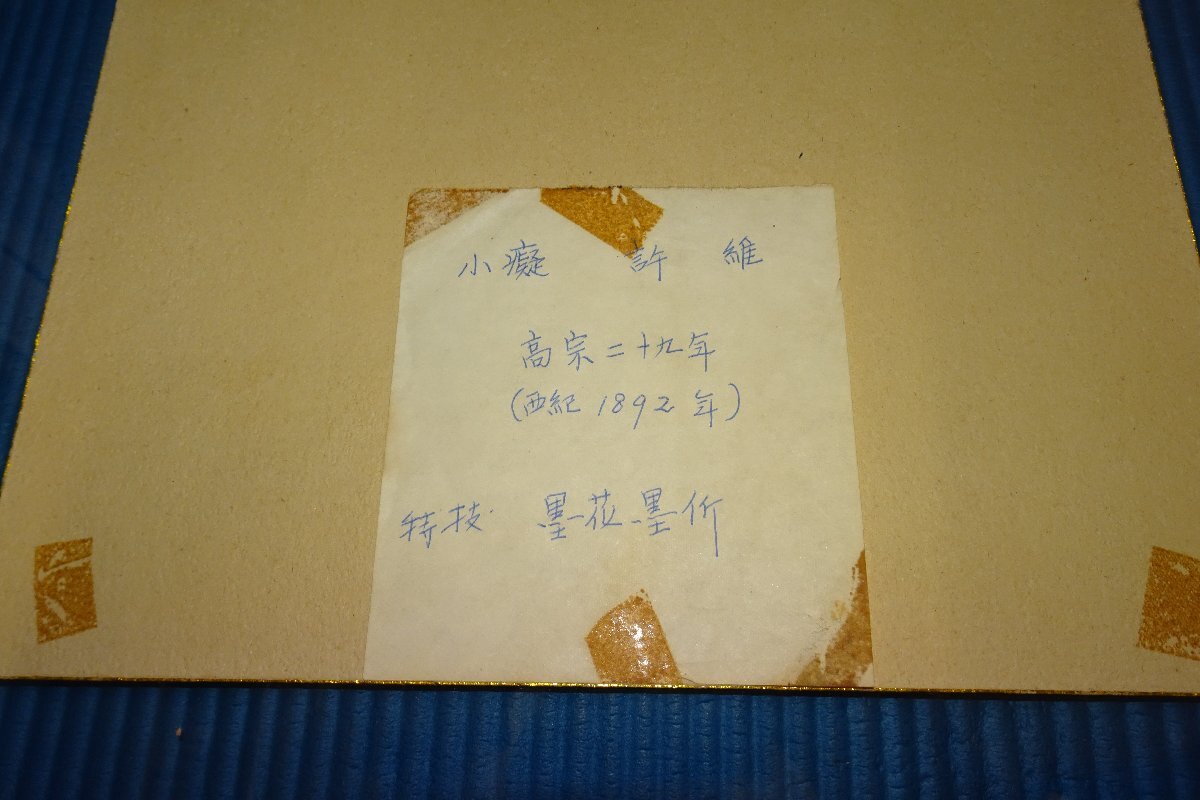 小癡 許 維
高宗二十九年
(西紀 1892 年)
特技 墨花墨竹